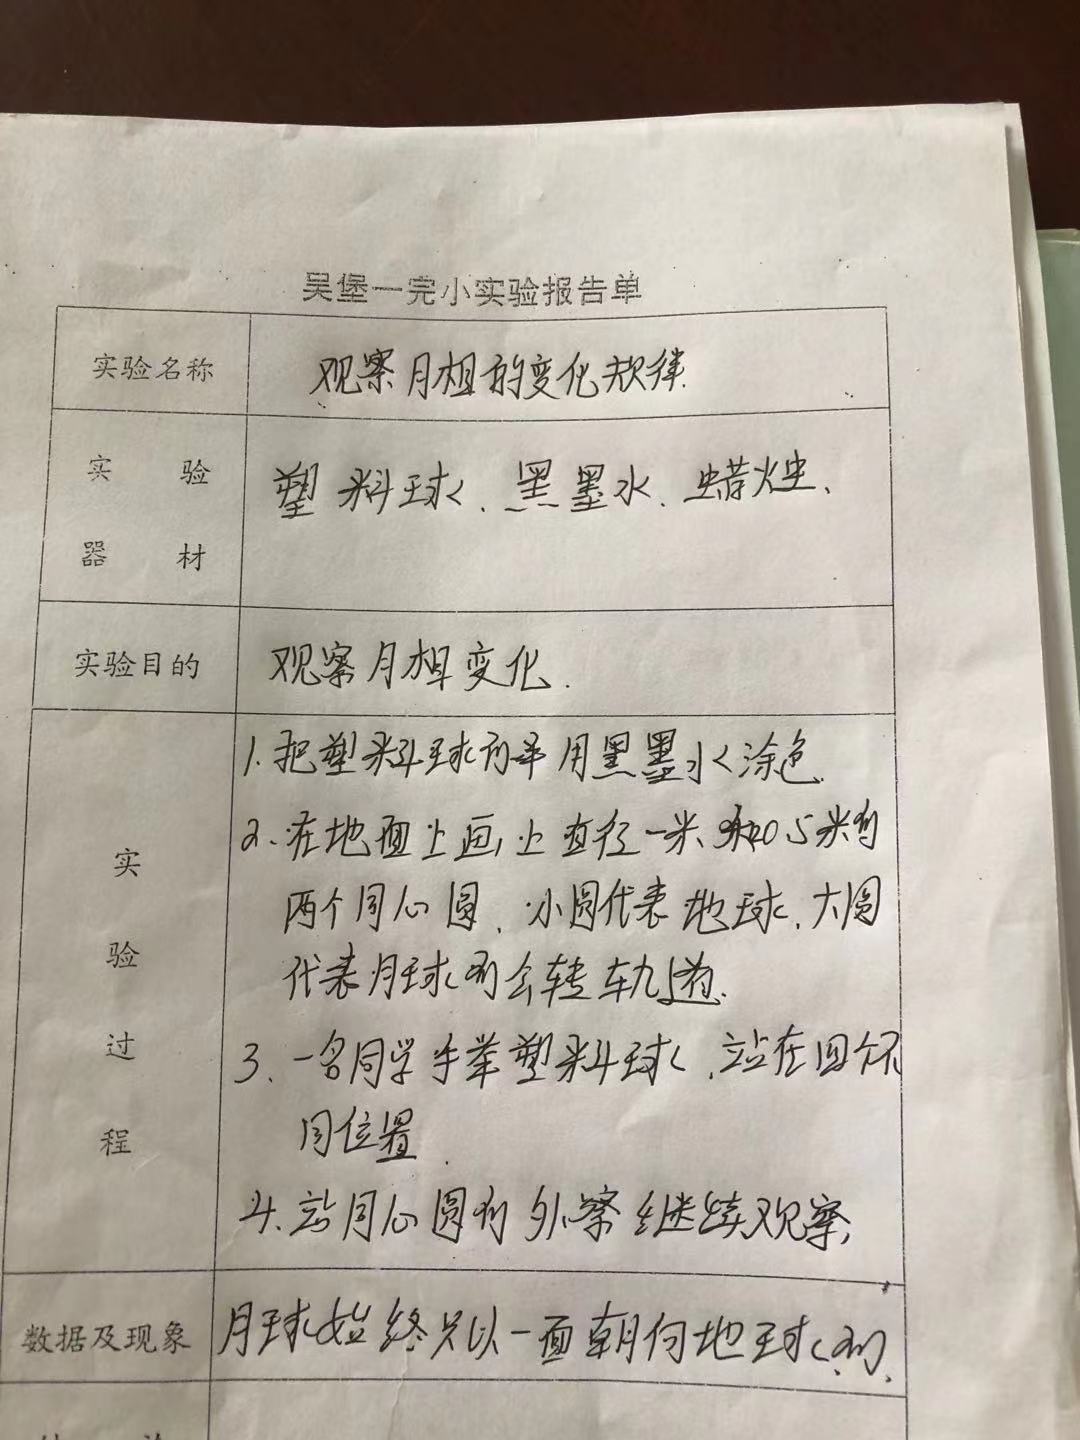 吴堡一完小实验报告单
实验名称 观察月相的变化规律.
实验 塑料球、黑墨水、蜡烛、
器材
实验目的 观察月相变化.
1.把塑料球的半用黑墨水涂色.
2.在地面上画上直径一米和0.5米的
实 两个同心圆、小圆代表地球、大圆
验 代表月球的公转轨道.
过 3、一名同学手举塑料球、站在四个不
程 同位置.
4.站同心圆的外察继续观察、
数据及现象 月球始终只以一面朝向地球的、